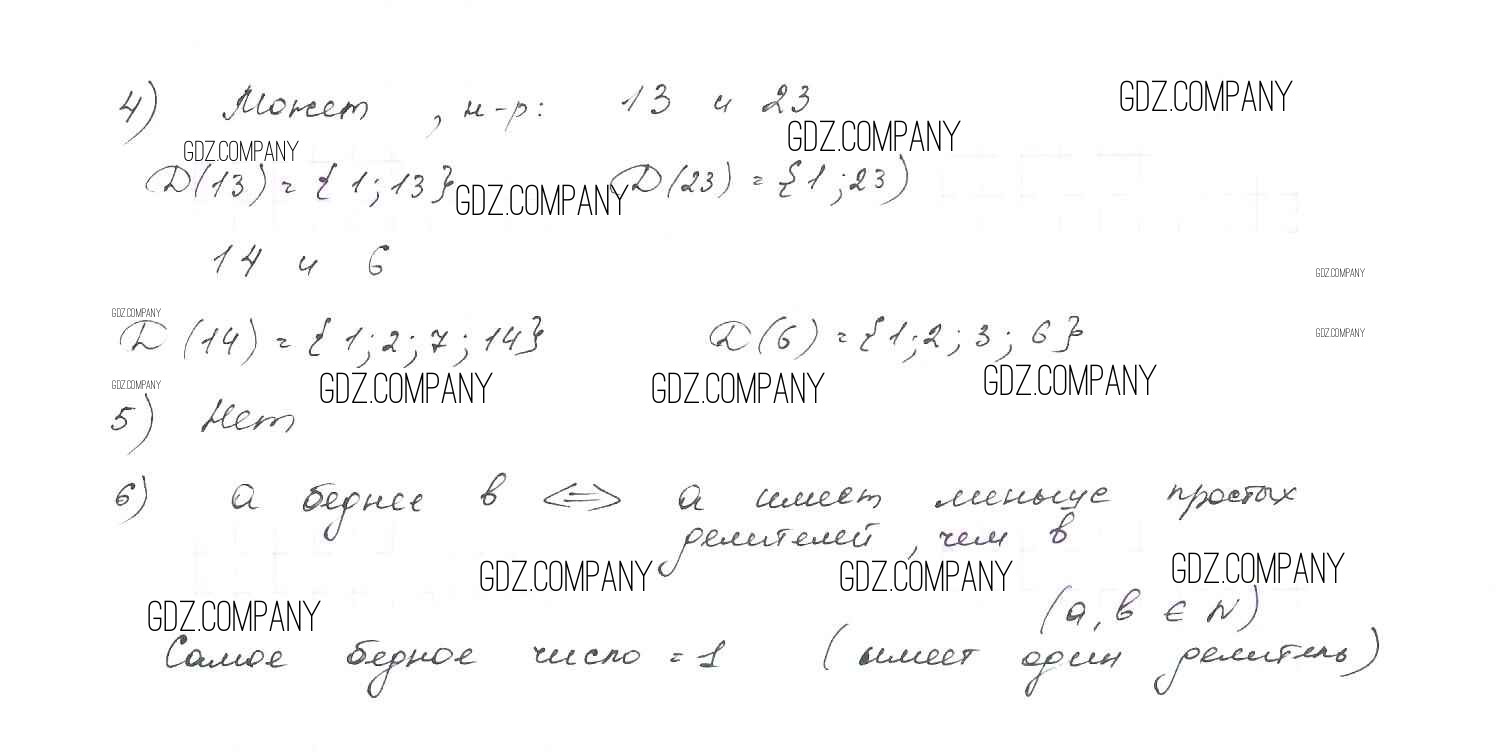 4) Может, н-р: 13 и 23 GDZ.COMPANY
GDZ.COMPANY
GDZ.COMPANY
D(13) = {1; 13} GDZ.COMPANY D(23) = {1; 23)
14 и 6
GDZ.COMPANY
GDZ.COMPANY
D(14) = {1; 2; 7; 14} D(6) = {1; 2; 3; 6} GDZ.COMPANY
GDZ.COMPANY GDZ.COMPANY GDZ.COMPANY GDZ.COMPANY
5) Нет
6) а беднее в <=> а имеет меньше простых
делителей, чем в
GDZ.COMPANY GDZ.COMPANY GDZ.COMPANY
GDZ.COMPANY (а, в ∈ N)
Самое бедное число = 1 (имеет один делитель)